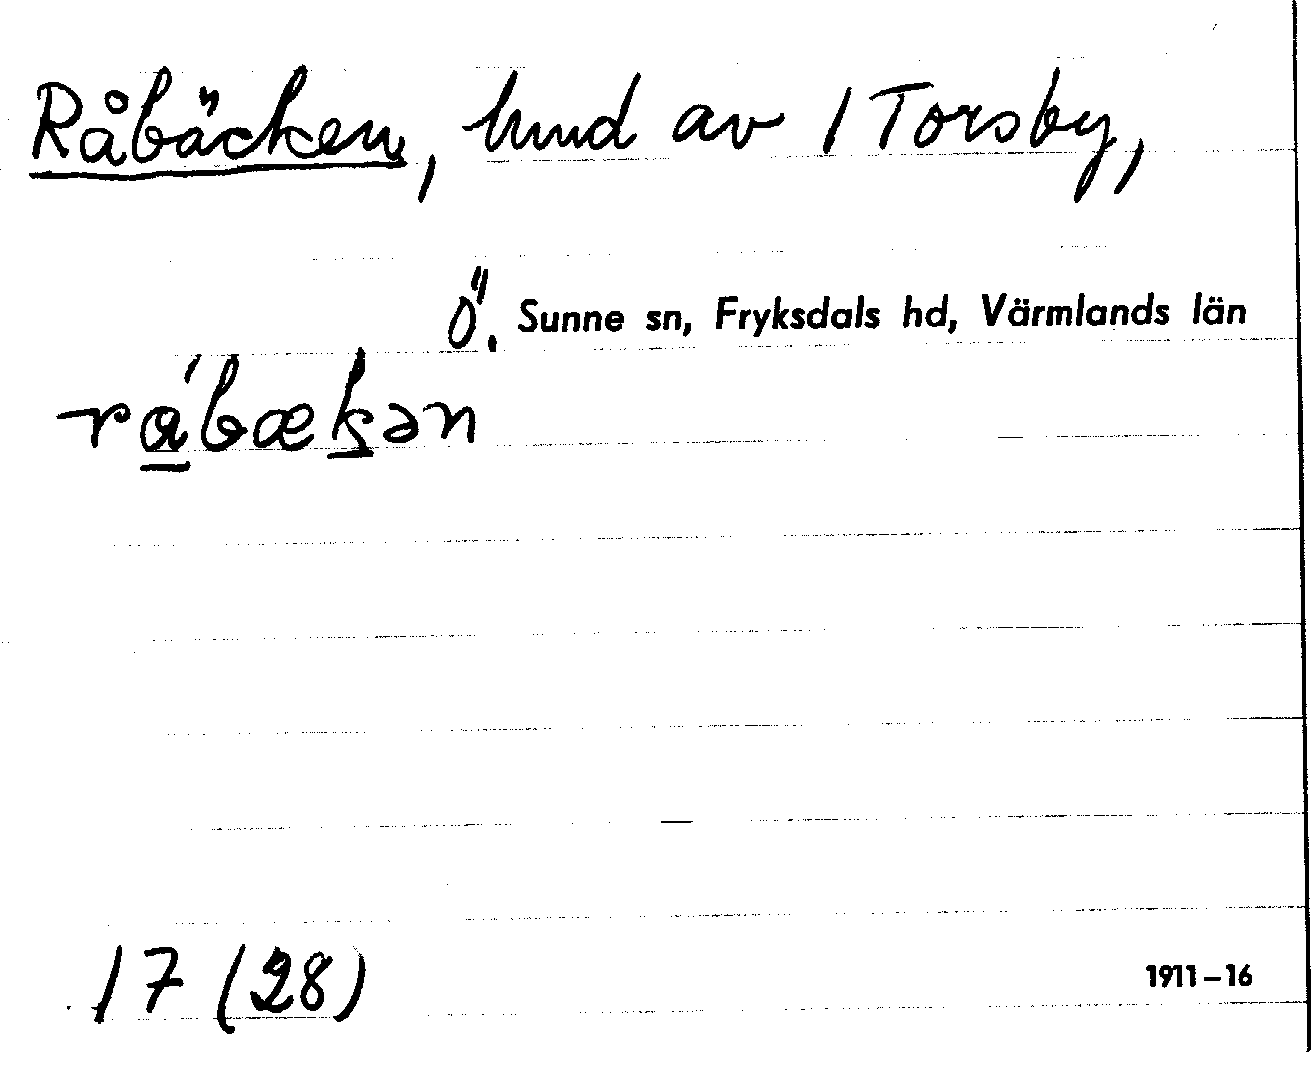 Råbäcken, hmd av 1 Torsby,
Ö. Sunne sn, Fryksdals hd, Värmlands län
rábækən
17 (28)
1911-16